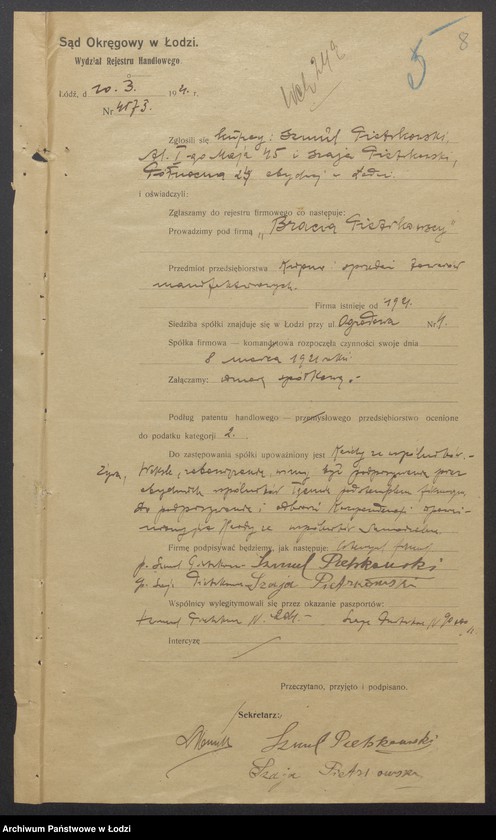 8
5
Sąd Okręgowy w Łodzi.
Wydział Rejestru Handlowego.
Łódź, d 10. 3. 192 r.
Nr 4573.
Zgłosili się kupcy: Szmul Pietrkowski,
Al. I-go Maja 45 i Szaja Pietrkowski,
Północna obydwaj w Łodzi.
i oświadczyli:
Zgłaszamy do rejestru firmowego co następuje:
Prowadzimy pod firmą „Bracia Pietrkowscy"
Przedmiot przedsiębiorstwa Kupno i sprzedaż towarów
manufakturowych.
Firma istnieje od 1921.
Siedziba spółki znajduje się w Łodzi przy ul. Ogrodowa Nr 4.
Spółka firmowa — komandytowa rozpoczęła czynności swoje dnia
8 marca 1921 roku.
Załączamy: umowę spółkową.-
Podług patentu handlowego — przemysłowego przedsiębiorstwo ocenione
do podatku kategorji 2.
Do zastępowania spółki upoważniony jest Każdy ze wspólników.-
Weksle, zobowiązania, winny być podpisywane przez
obydwóch wspólników pod stemplem firmowym
do podpisywania i odbioru korespondencji
Każdy ze wspólników samodzielnie
Firmę podpisywać będziemy, jak następuje:
p. Szmul Pietrkowski Szmul Pietrkowski
p. Szaja Pietrkowski Szaja Pietrkowski
Wspólnicy wylegitymowali się przez okazanie paszportów:
Szmul Pietrkowski N. Szaja Pietrkowski N
Intercyzę
Przeczytano, przyjęto i podpisano.
Sekretarz:
Szmul Pietrkowski
Szaja Pietrkowski
Archiwum Państwowe w Łodzi